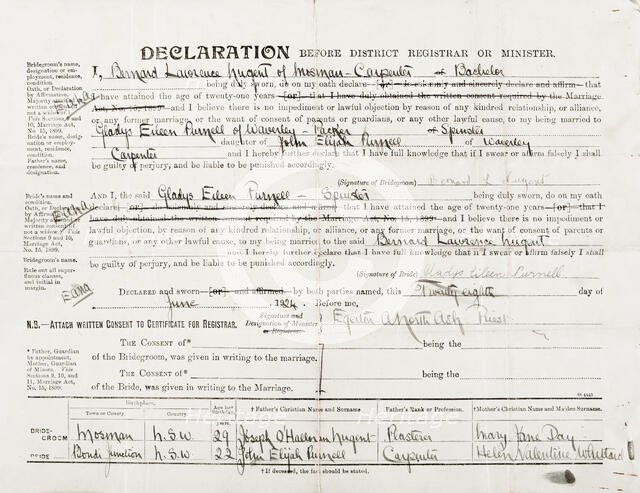 DECLARATION BEFORE DISTRICT REGISTRAR OR MINISTER.
Bridegroom's name, designation or employment, residence, condition.
Oath, or Declaration by Affirmation.
I, Bernard Lawrence Nugent of Mosman - Carpenter & Bachelor
being duly sworn, do on oath declare [or] is truly and sincerely declare and affirm that
I have attained the age of twenty-one years [or] that I have duly obtained the written consent required by the Marriage
Act, No. 15, 1899 and I believe there is no impediment or lawful objection by reason of any kindred relationship, or alliance,
or any former marriage, or the want of consent of parents or guardians, or any other lawful cause, to my being married to
Gladys Eileen Purnell of Waverley - Packer & Spinster
daughter of John Elijah Purnell of Waverley
Carpenter and I hereby further declare that I have full knowledge that if I swear or affirm falsely I shall
be guilty of perjury, and be liable to be punished accordingly.
(Signature of Bridegroom) Bernard L Nugent
Bride's name and condition.
Oath, or Declaration by Affirmation.
AND I, the said Gladys Eileen Purnell - Spinster being duly sworn, do on my oath
that I have attained the age of twenty-one years [or] that I
have duly obtained the required by the Marriage Act, No. 15, 1899 and I believe there is no impediment or
lawful objection, by reason of any kindred relationship, or alliance, or any former marriage, or the want of consent of parents or
guardians, or any other lawful cause, to my being married to the said Bernard Lawrence Nugent
Bridegroom's name.
and I hereby further declare that I have full knowledge that if I swear or affirm falsely I shall
be guilty of perjury, and be liable to be punished accordingly.
(Signature of Bride) Gladys Eileen Purnell
Rule out all superfluous clauses, and initial in margin.
DECLARED and sworn [or] and affirmed by both parties named, this Twenty eighth day of
June, 1924. Before me,
Signature and Designation of Minister or Registrar.
Egerton A North Ash Priest
N.B.—ATTACH WRITTEN CONSENT TO CERTIFICATE FOR REGISTRAR.
* Father, Guardian by appointment, Mother, Guardian of Minors. Vide Sections 9, 10, and 11, Marriage Act, No. 15, 1899.
THE CONSENT OF* being the
of the Bridegroom, was given in writing to the marriage.
THE CONSENT OF* being the
of the Bride, was given in writing to the Marriage.
Birthplace.
Town or County. Country. Age last Birthday † Father's Christian Name and Surname. Father's Rank or Profession. †Mother's Christian Name and Maiden Surname.
BRIDEGROOM Mosman N.S.W. 29 Joseph Nugent Plasterer Mary Jane Day
BRIDE Bondi Junction N.S.W. 22 John Elijah Purnell Carpenter Helen Valentine
† If deceased, the fact should be stated.
Heritage